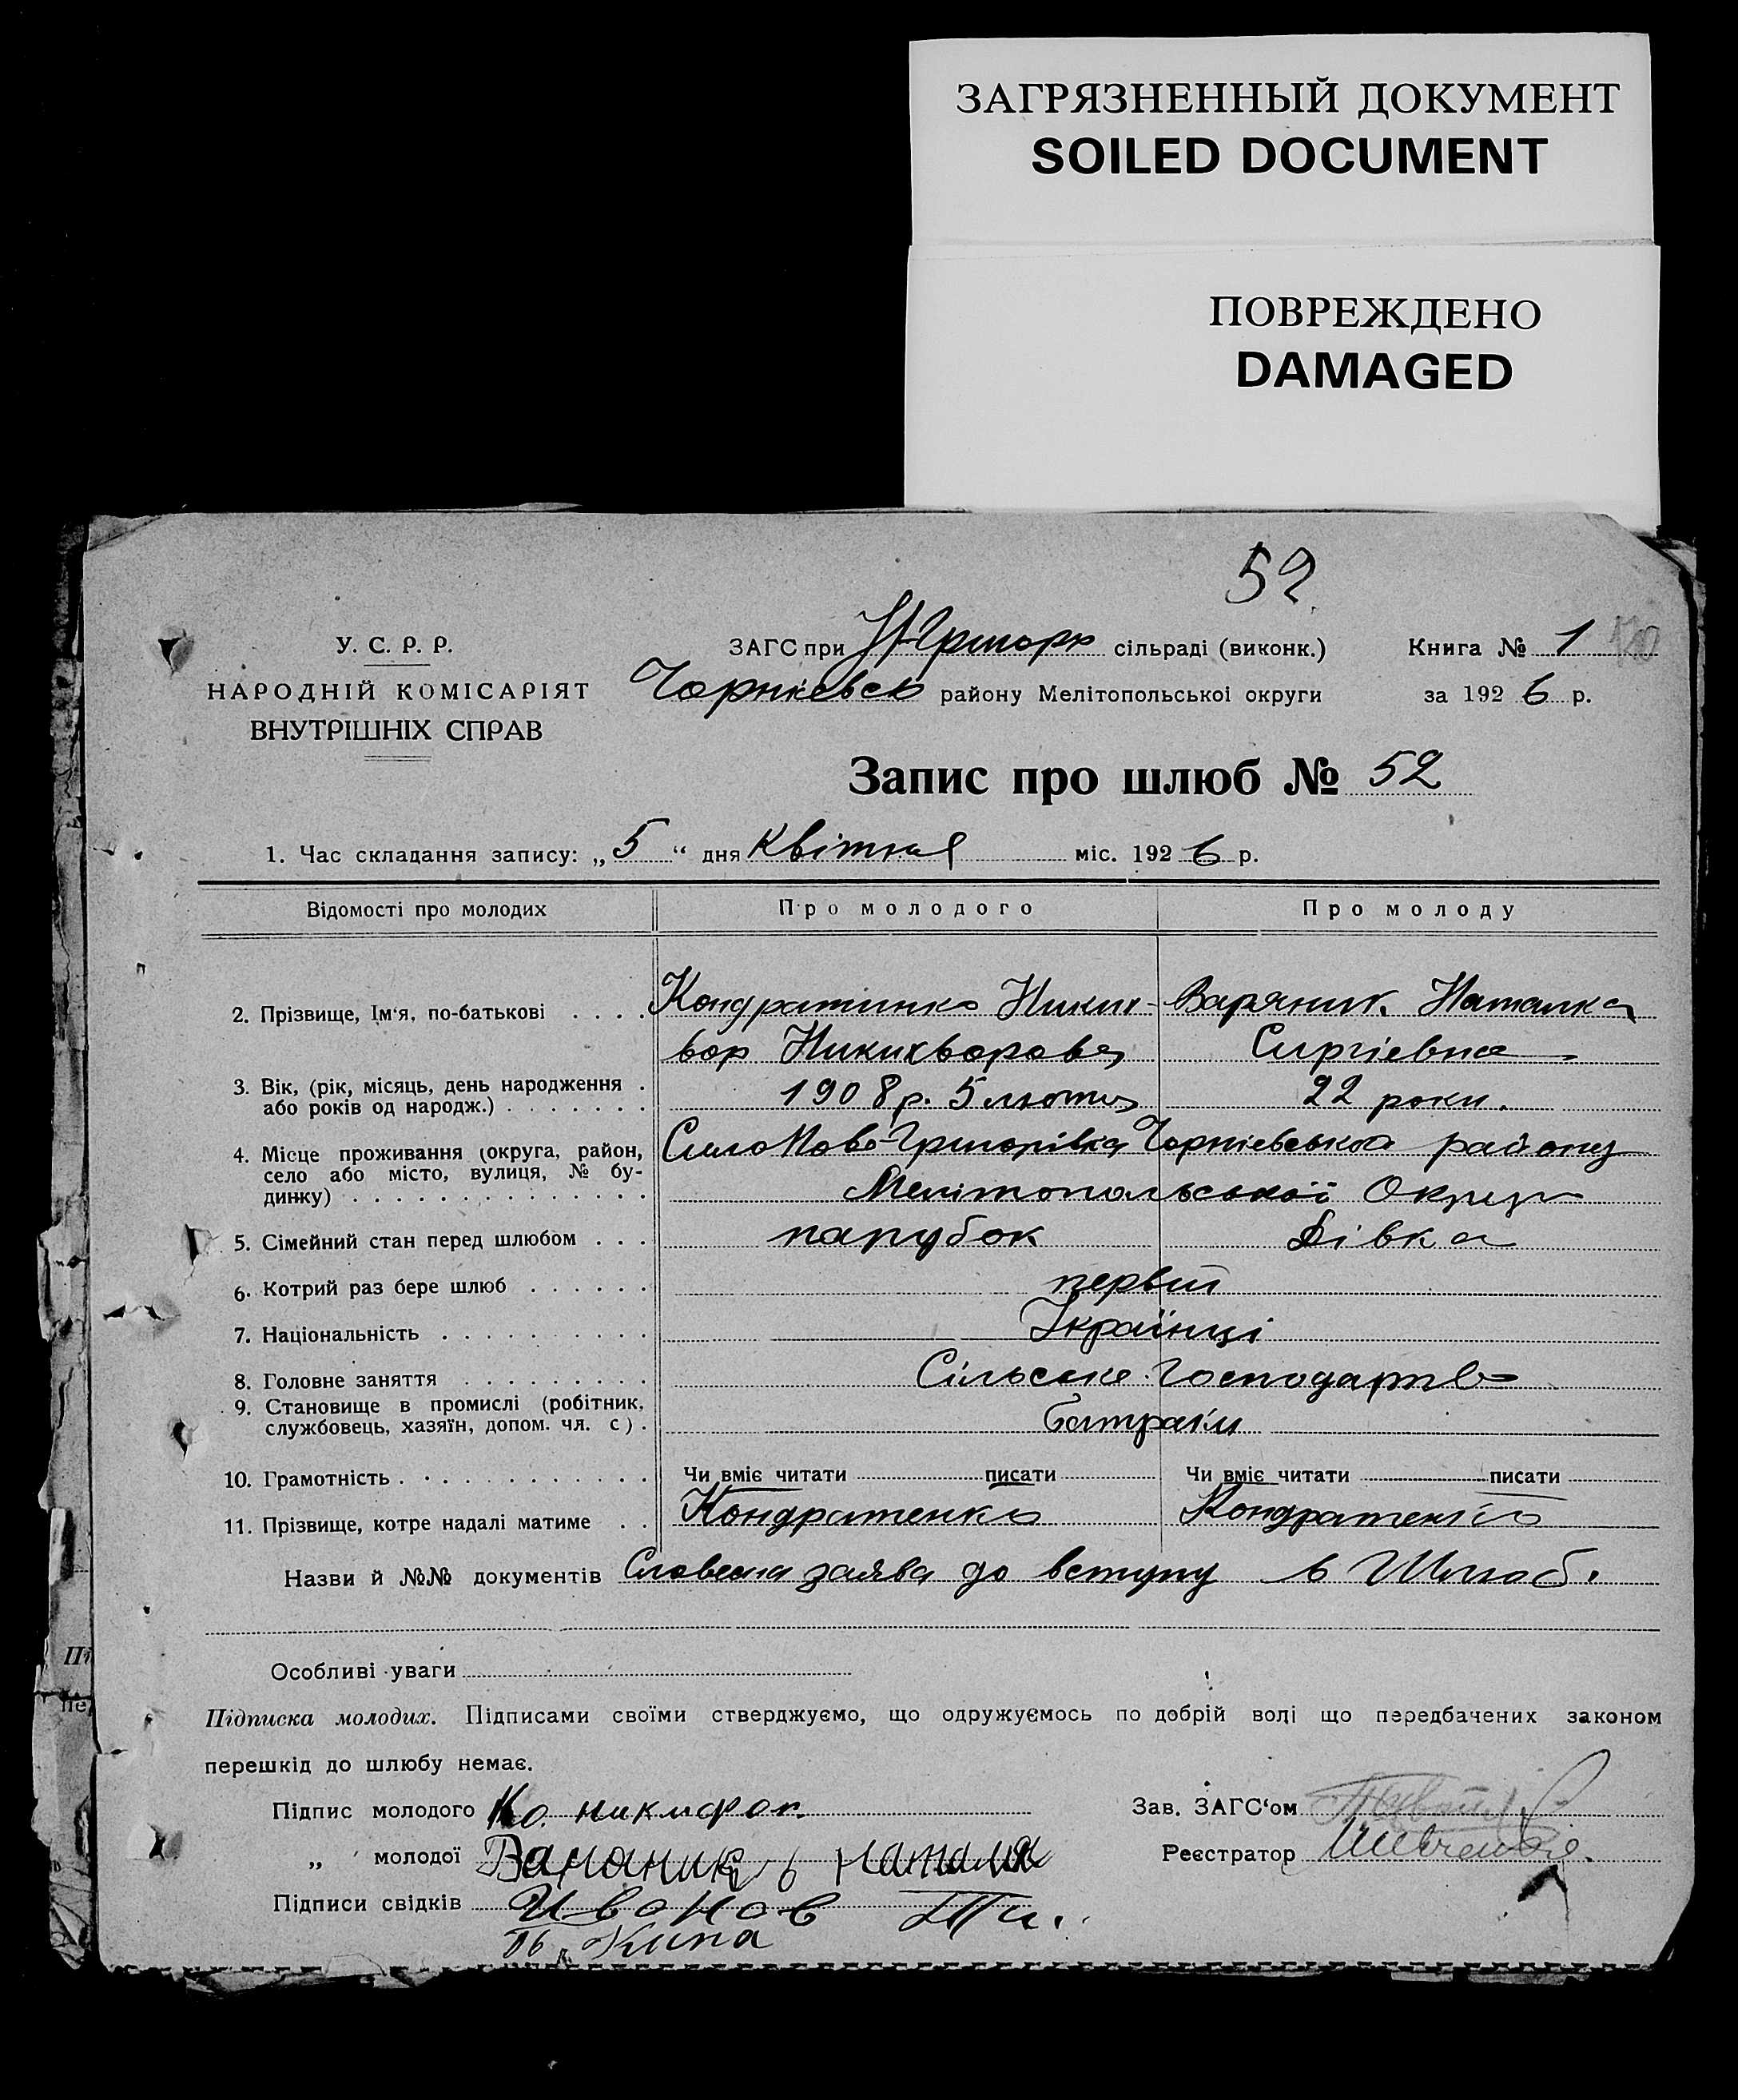 ЗАГРЯЗНЕННЫЙ ДОКУМЕНТ
SOILED DOCUMENT
ПОВРЕЖДЕНО
DAMAGED
52
У. С. Р. Р.
НАРОДНІЙ КОМІСАРІЯТ
ВНУТРІШНІХ СПРАВ
ЗАГС при Н-Григорк сільраді (виконк.)
Чорніевсь району Мелітопольської округи
Книга № 1
за 1926 р.
Запис про шлюб № 52
1. Час складання запису: „5“ дня Квітня міс. 1926 р.
Відомості про молодих Про молодого Про молоду
2. Прізвище, Ім‘я, по-батькові . . . . Кондратинко Ники- Варяник Наталка
вор Никихворовец Сиргіевна
3. Вік, (рік, місяць, день народження . 1908 р. 5 лютий 22 роки.
або років од народж.) . . . . . . .
4. Місце проживання (округа, район, Село Ново-Григорівка Чорніевського району
село або місто, вулиця, № бу-
динку) . . . . . . . . . . . . . . Мелітопольської Округи
5. Сімейний стан перед шлюбом . . . парубок Дівка
6. Котрий раз бере шлюб . . . . . . первий
7. Національність . . . . . . . . . . Українці
8. Головне заняття . . . . . . . . . Сільське Господартво
9. Становище в промислі (робітник, батраки
службовець, хазяїн, допом. чл. с) .
10. Грамотність . . . . . . . . . . . . Чи вміє читати писати Чи вміє читати писати
11. Прізвище, котре надалі матиме . . Кондратенко Кондратенко
Назви й №№ документів Словесна заява до вступу в Шлюб.
Особливі уваги
Підписка молодих. Підписами своїми стверджуємо, що одружуємось по добрій волі що передбачених законом
перешкід до шлюбу немає.
Підпис молодого Ко. никифор.
Зав. ЗАГС‘ом
„ молодої наталя
Реєстратор
Підписи свідків Иванов